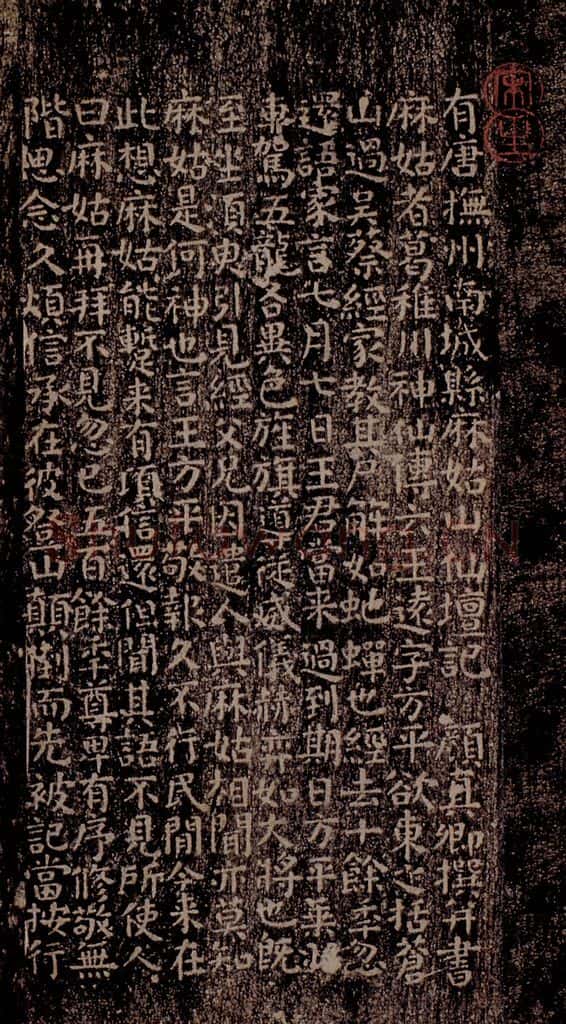 有唐撫州南城縣麻姑山仙壇記 顏真卿撰并書
麻姑者葛稚川神仙傳云王遠字方平欲東之括蒼
山過吳蔡經家教其尸解如虵蟬也經去十餘年忽
還語家言七月七日王君當来過到期日方平乘羽
車駕五龍各異色旌旗導從威儀赫弈如大將也既
至坐須臾引見經父兄因遣人與麻姑相聞亦莫知
麻姑是何神也言王方平敬報久不行民間今来在
此想麻姑能蹔来有頃信還但聞其語不見所使人
曰麻姑再拜不見忽已五百餘年尊卑有序修敬無
階思念久煩信承在彼登山顛倒而先被記當按行